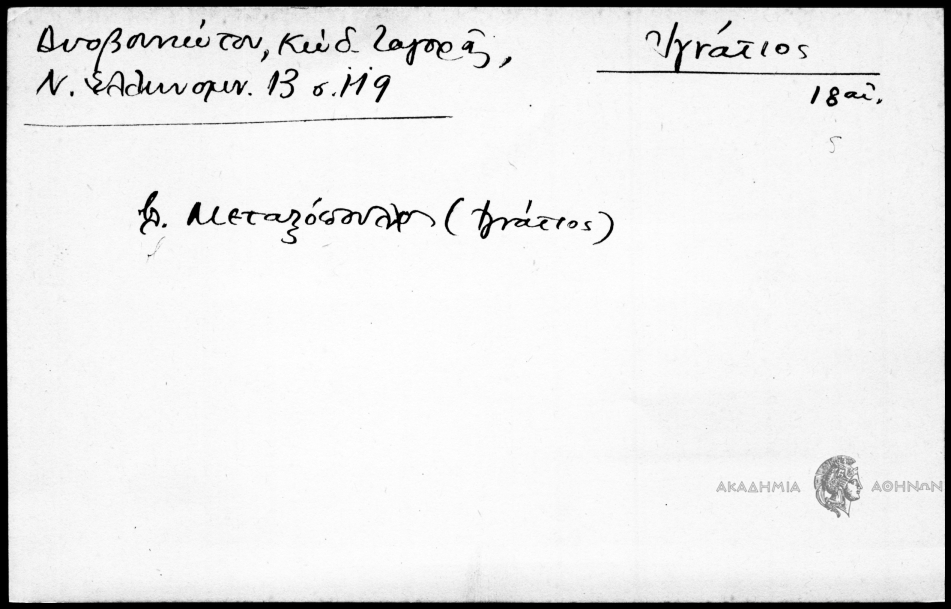 Δυοβουνιώτου, Κώδ. Ζαγορᾶς,
Ν. Ἑλληνομν. 13 σ. 119
Ἰγνάτιος
18 αἰ.
β. Μεταξόπουλος (Ἰγνάτιος)
ΑΚΑΔΗΜΙΑ ΑΘΗΝΩΝ